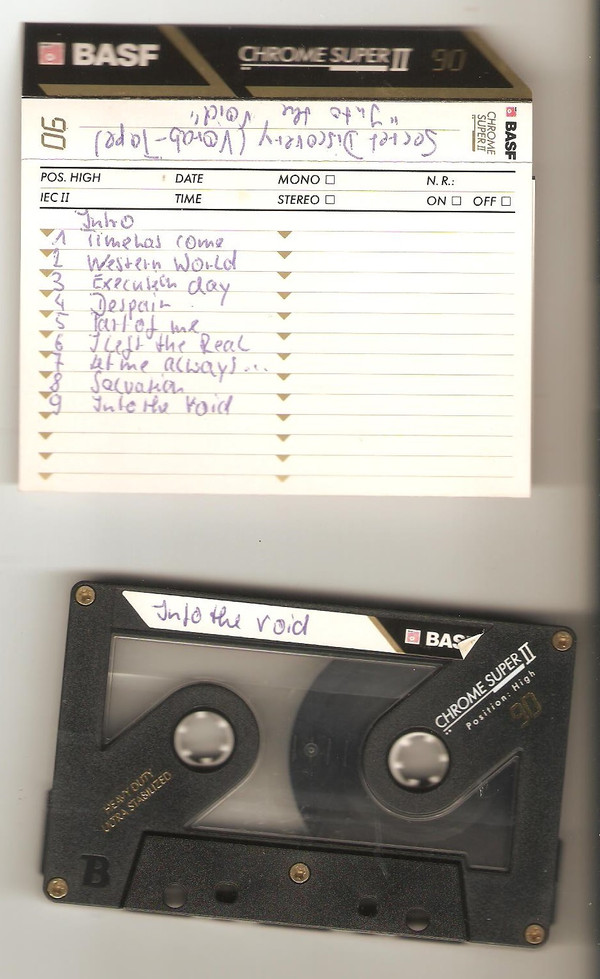 BASF CHROME SUPER II 90
90 Secret Discovery (Vorab-Tape)
"Into the Void"
BASF CHROME SUPER II
POS. HIGH DATE MONO N.R.:
IEC II TIME STEREO ON OFF
Intro
1 Time has come
2 Western World
3 Execution day
4 Despair
5 Part of me
6 I left the Real
7 Let me always...
8 Salvation
9 Into the Void
Into the Void
BASF
CHROME SUPER II
Position: High
90
HEAVY DUTY
ULTRA STABILIZED
B